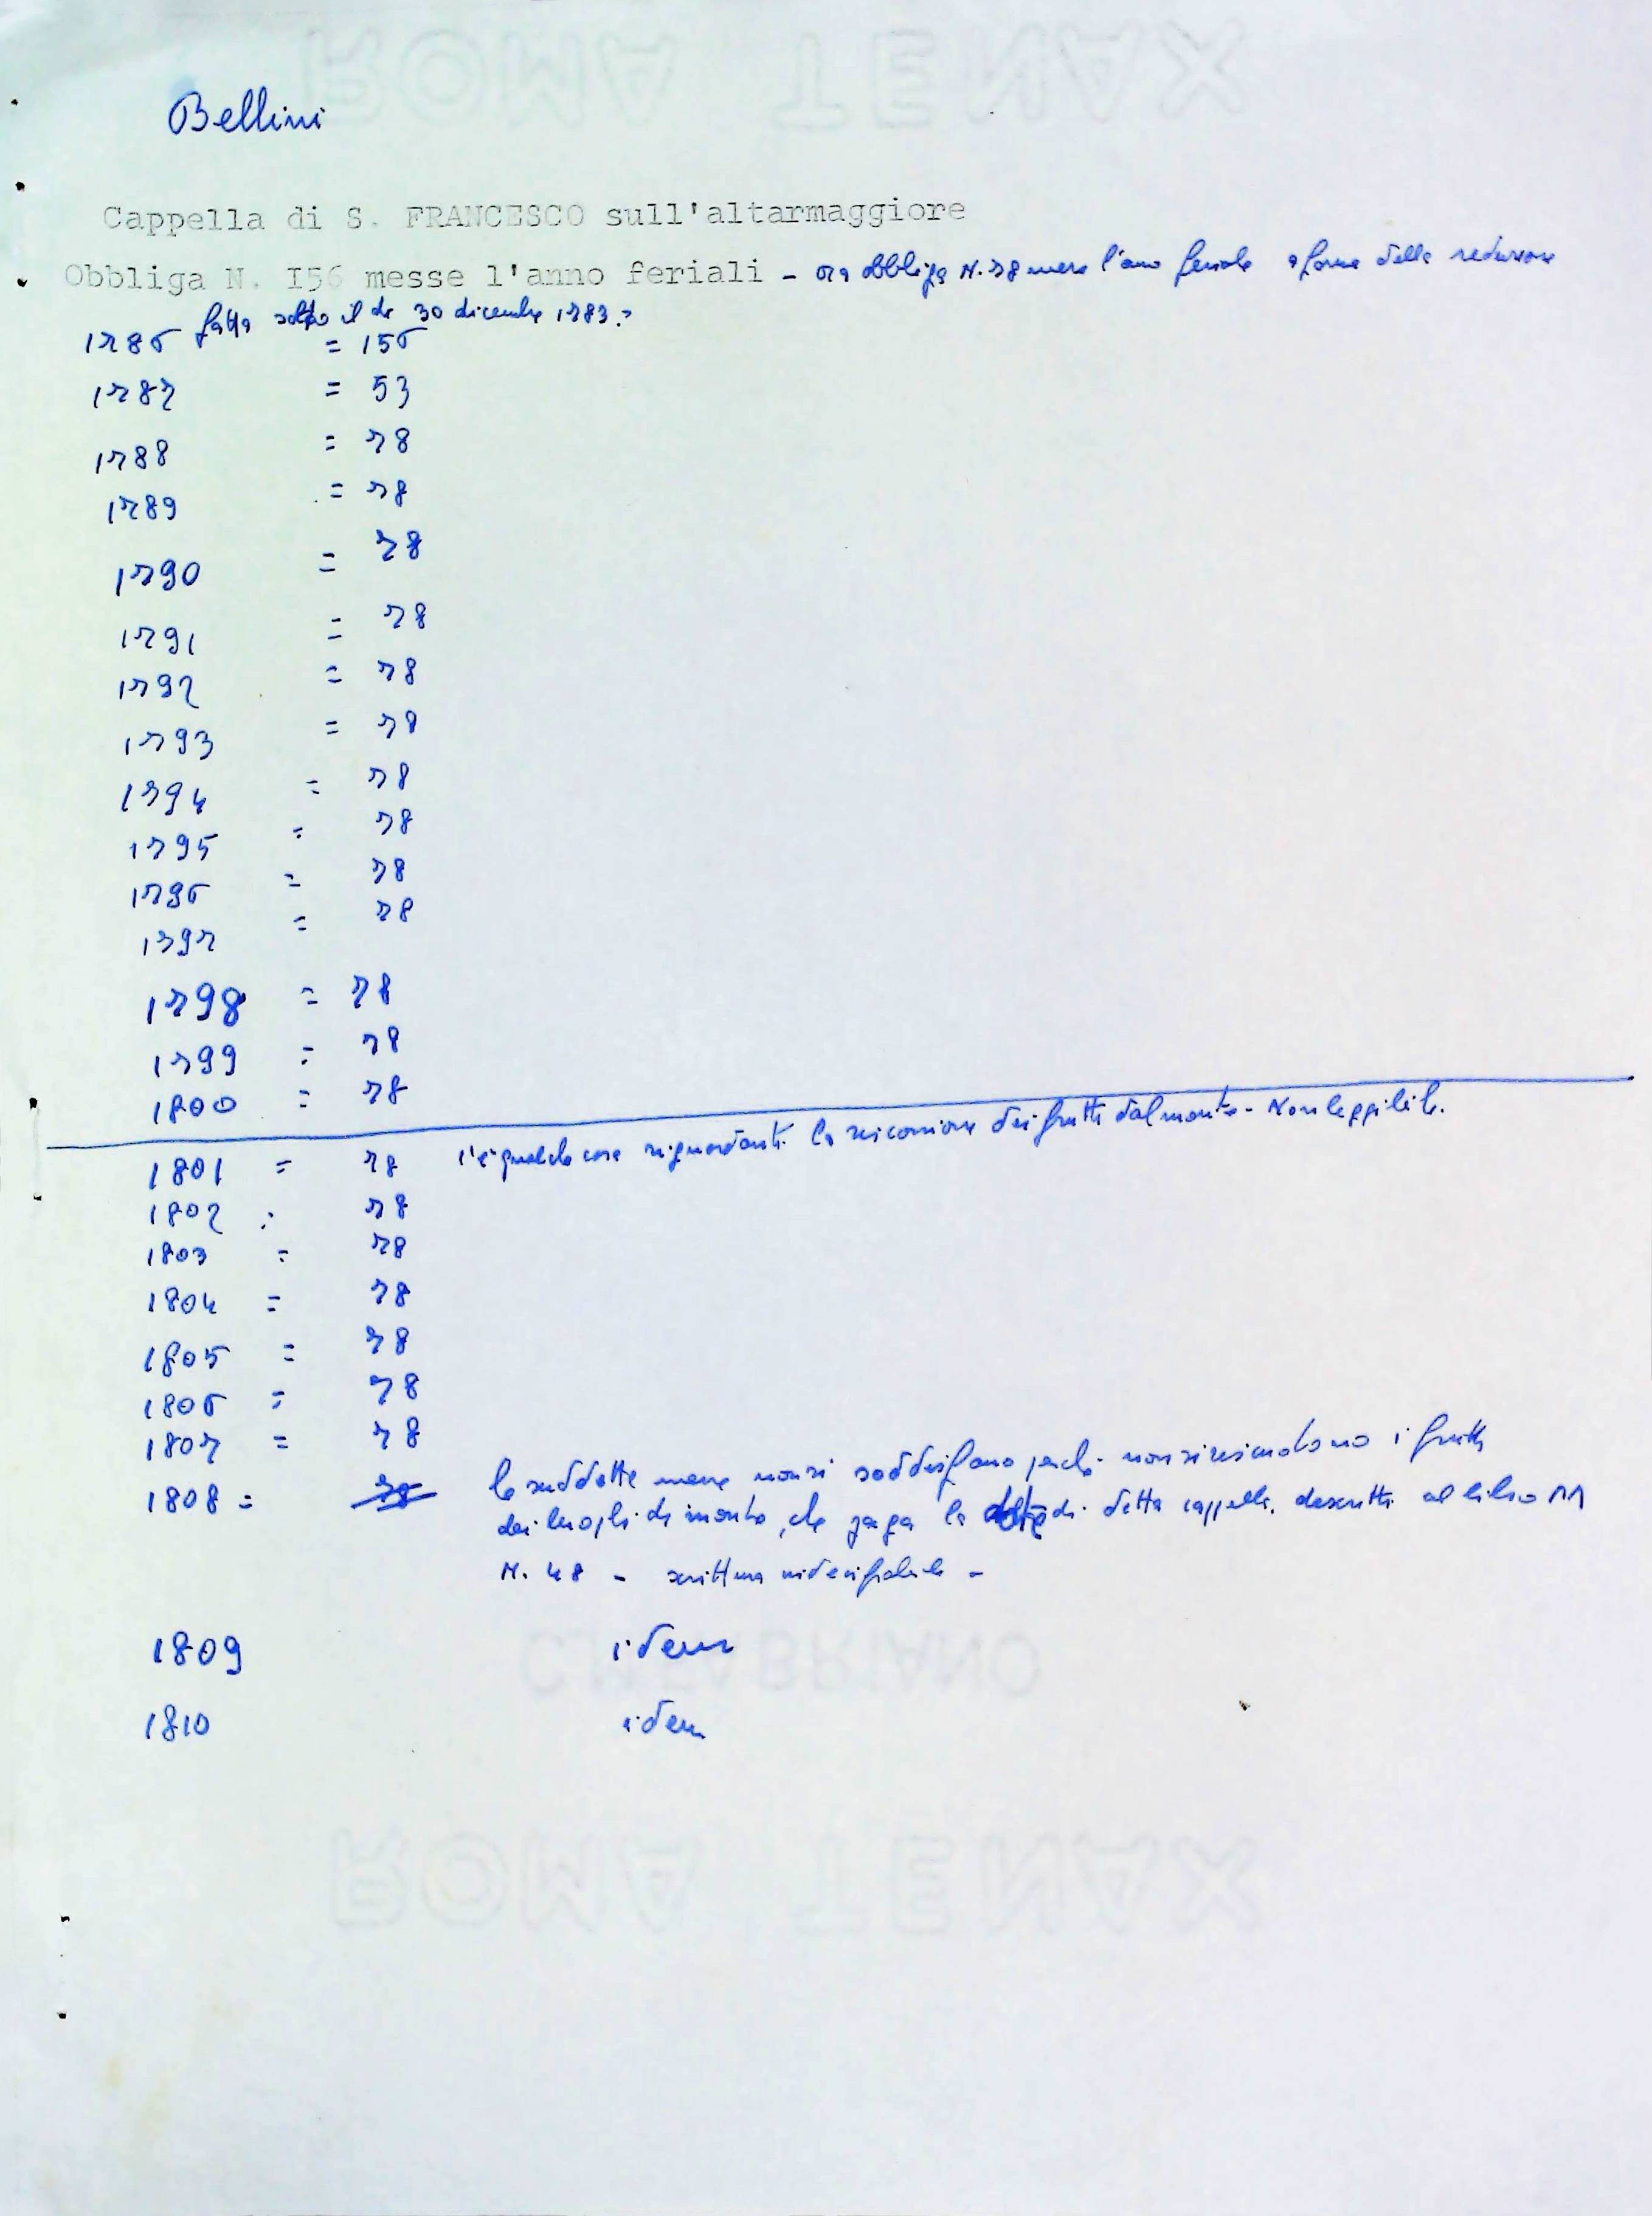 Bellini
Cappella di S. FRANCESCO sull'altarmaggiore
Obbliga N. I56 messe l'anno feriali - ora obbliga N. 78 messe l'anno feriali a forma della reduzione
fatta sotto il dì 30 dicembre 1783.=
1786 = 156
1787 = 53
1788 = 78
1789 = 78
1790 = 78
1791 = 78
1792 = 78
1793 = 78
1794 = 78
1795 = 78
1796 = 78
1797 = 78
1798 = 78
1799 = 78
1800 = 78
1801 = 78 c'è qualche cosa riguardanti la riscossione dei frutti dal monte - Non leggibile.
1802 = 78
1803 = 78
1804 = 78
1805 = 78
1806 = 78
1807 = 78
1808 = 78 le suddette messe non si soddisfano perché non si riscuotono i frutti
dei luoghi di monte, che paga la dote di detta cappella, descritti al libro M
N. 48 - scrittura indecifrabile -
1809 idem
1810 idem
ROMA TENAX
C.M.FABRIANO
ROMA TENAX